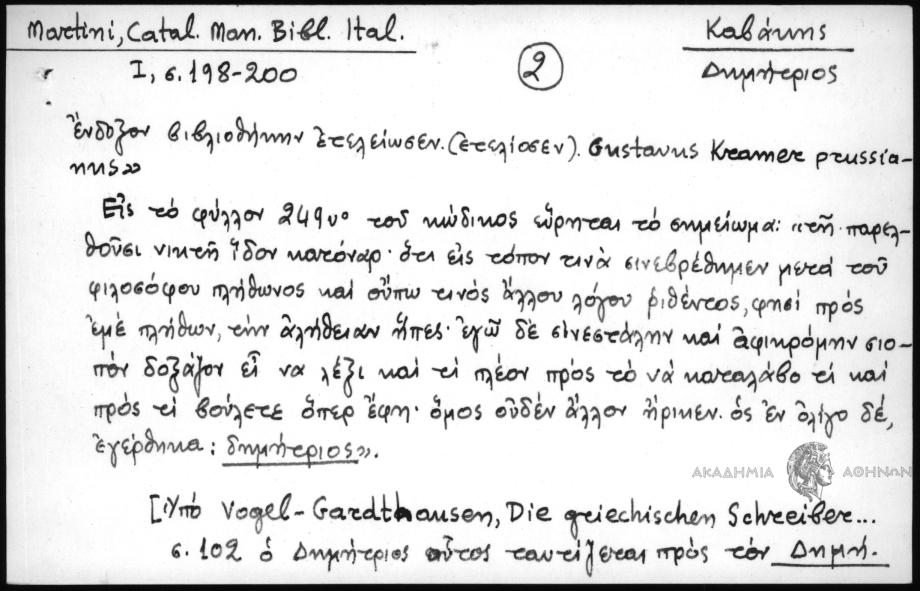 Martini, Catal. Man. Bibl. Ital. Καβάκης
I, σ. 198-200 2 Δημήτριος
ἔνδοξον βιβλιοθήκην ἐτελείωσεν. (ἐτελίοσεν). Gustavus Kramer prussia-
nus»
Εἰς τὸ φύλλον 249υο τοῦ κώδικος εὕρηται τὸ σημείωμα: «τῇ παρελ-
θοῦσι νικτῇ ἴδον κατόναρ· ὅτι εἰς τόπον τινὰ σινεβρέθημεν μετά τοῦ
φιλοσόφου πλήθωνος καί οὔπω τινός ἄλλου λόγου ῥιθέντος, φησί πρός
ἐμέ πλήθων, τήν ἀλήθειαν ἤπες· ἐγῶ δέ σινεστάλην καί ἀφικρόμην σιο-
πόν δοξάζον εἶ να λέξι καί τί πλέον πρός τὸ νά καταλάβο τί καί
πρός τί βούλετε ὅπερ ἔφη· ὅμος οὐδέν ἄλλον ἤρικεν. ὁς ἐν ὀλίγο δέ,
ἐγέρθηκα: δημήτριος».
ΑΚΑΔΗΜΙΑ ΑΘΗΝΩΝ
[Ὑπό Vogel-Gardthausen, Die griechischen Schreiber...
σ. 102 ὁ Δημήτριος οὗτος ταυτίζεται πρός τόν Δημή.